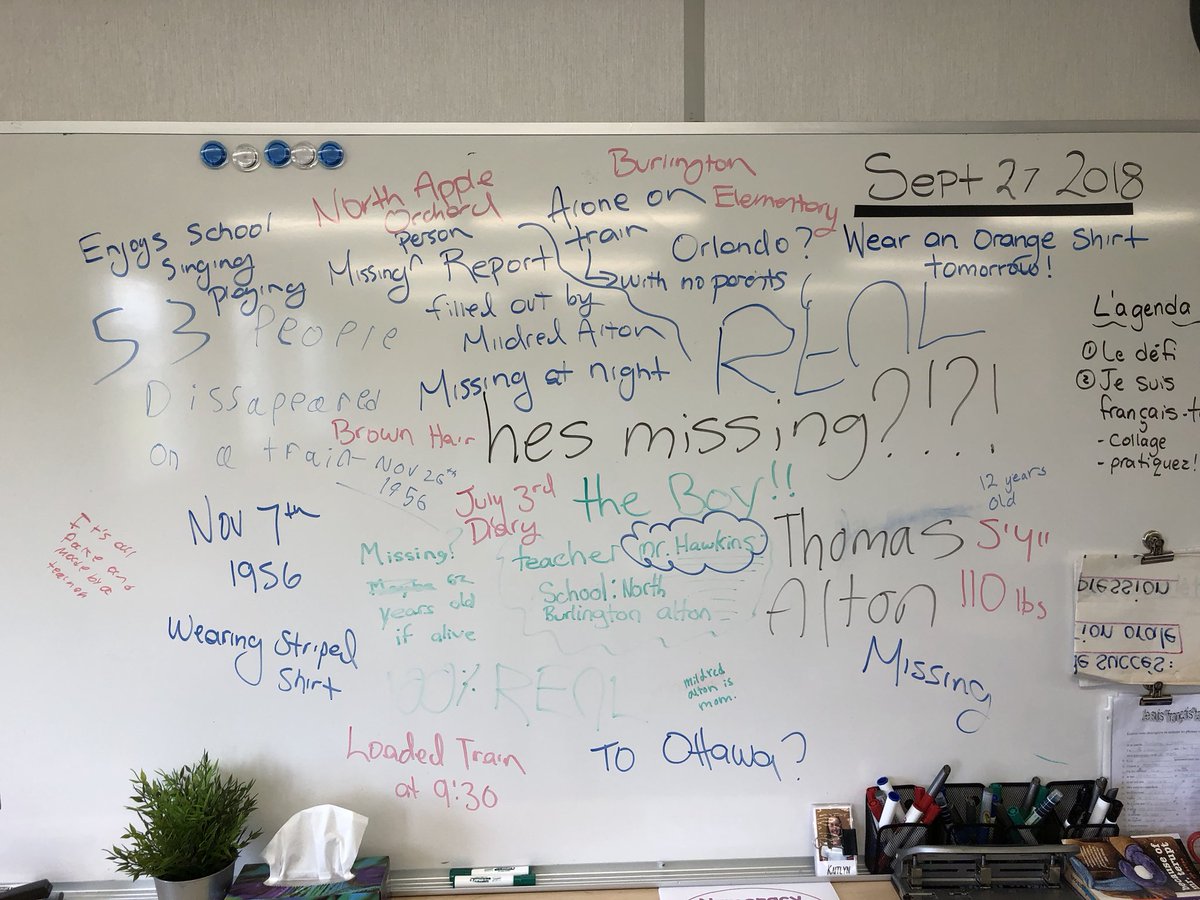 Sept 27 2018
Wear an Orange Shirt
tomorrow!
Burlington
Elementary
North Apple
Orchard
Alone on
train
with no parents
Orlando?
Enjoys School
Singing
playing
Missing person Report
filled out by
Mildred Alton
Missing at night
REAL
53 People
Dissapeared
on a train
Nov 26th
1956
Brown Hair
hes missing?!?!
L'agenda
① Le défi
② Je suis
français.
- Collage
- pratiquez!
12 years
old
July 3rd
Diary
the Boy!!
Nov 7th
1956
It's all
fake and
made by a
teacher
Missing!
Maybe 62
years old
if alive
teacher mr. Hawkins
School: North
Burlington alton
Thomas
Alton
5'4"
110 lbs
Wearing Striped
Shirt
100% REAL
mildred
alton is
mom.
Missing
Loaded Train
at 9:30
TO Ottawa?
pression
ion orale
le succès:
KAITLYN